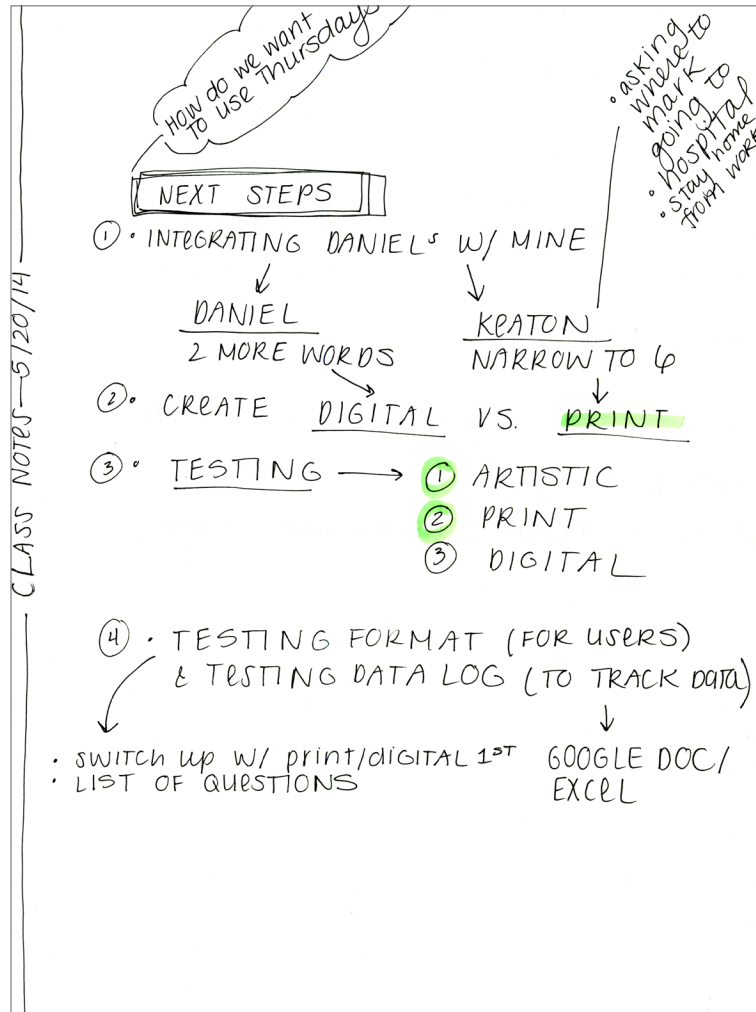 HOW do we want
TO use Thursdays
• asking
where to
mark
going to
• hospital
• stay home
from work
NEXT STEPS
① • INTEGRATING DANIELS W/ MINE
DANIEL
2 MORE WORDS
KEATON
NARROW TO 6
②• CREATE DIGITAL VS. PRINT
③ • TESTING → ① ARTISTIC
② PRINT
③ DIGITAL
④ • TESTING FORMAT (FOR USERS)
& TESTING DATA LOG (TO TRACK DATA)
• SWITCH UP W/ print/diGITAL 1ST
• LIST OF QUESTIONS
GOOGLE DOC/
EXCEL
CLASS NOTES—5/20/14